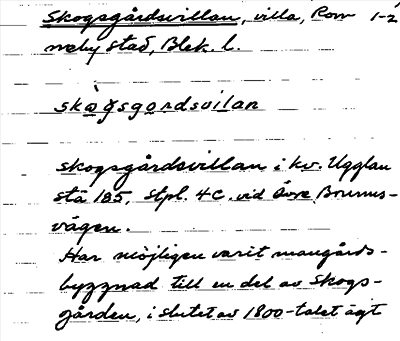 Skogsgårdsvillan, villa, Ron 1-2
neby stad, Blek. l.
skògsgordsvilan
Skogsgårdsvillan i kv. Ugglan
stä 185, stpl. 4C. vid Övre Brunns-
vägen.
Har möjligen varit mangårds-
byggnad till en del av Skogs-
gården, i slutet av 1800-talet ägt